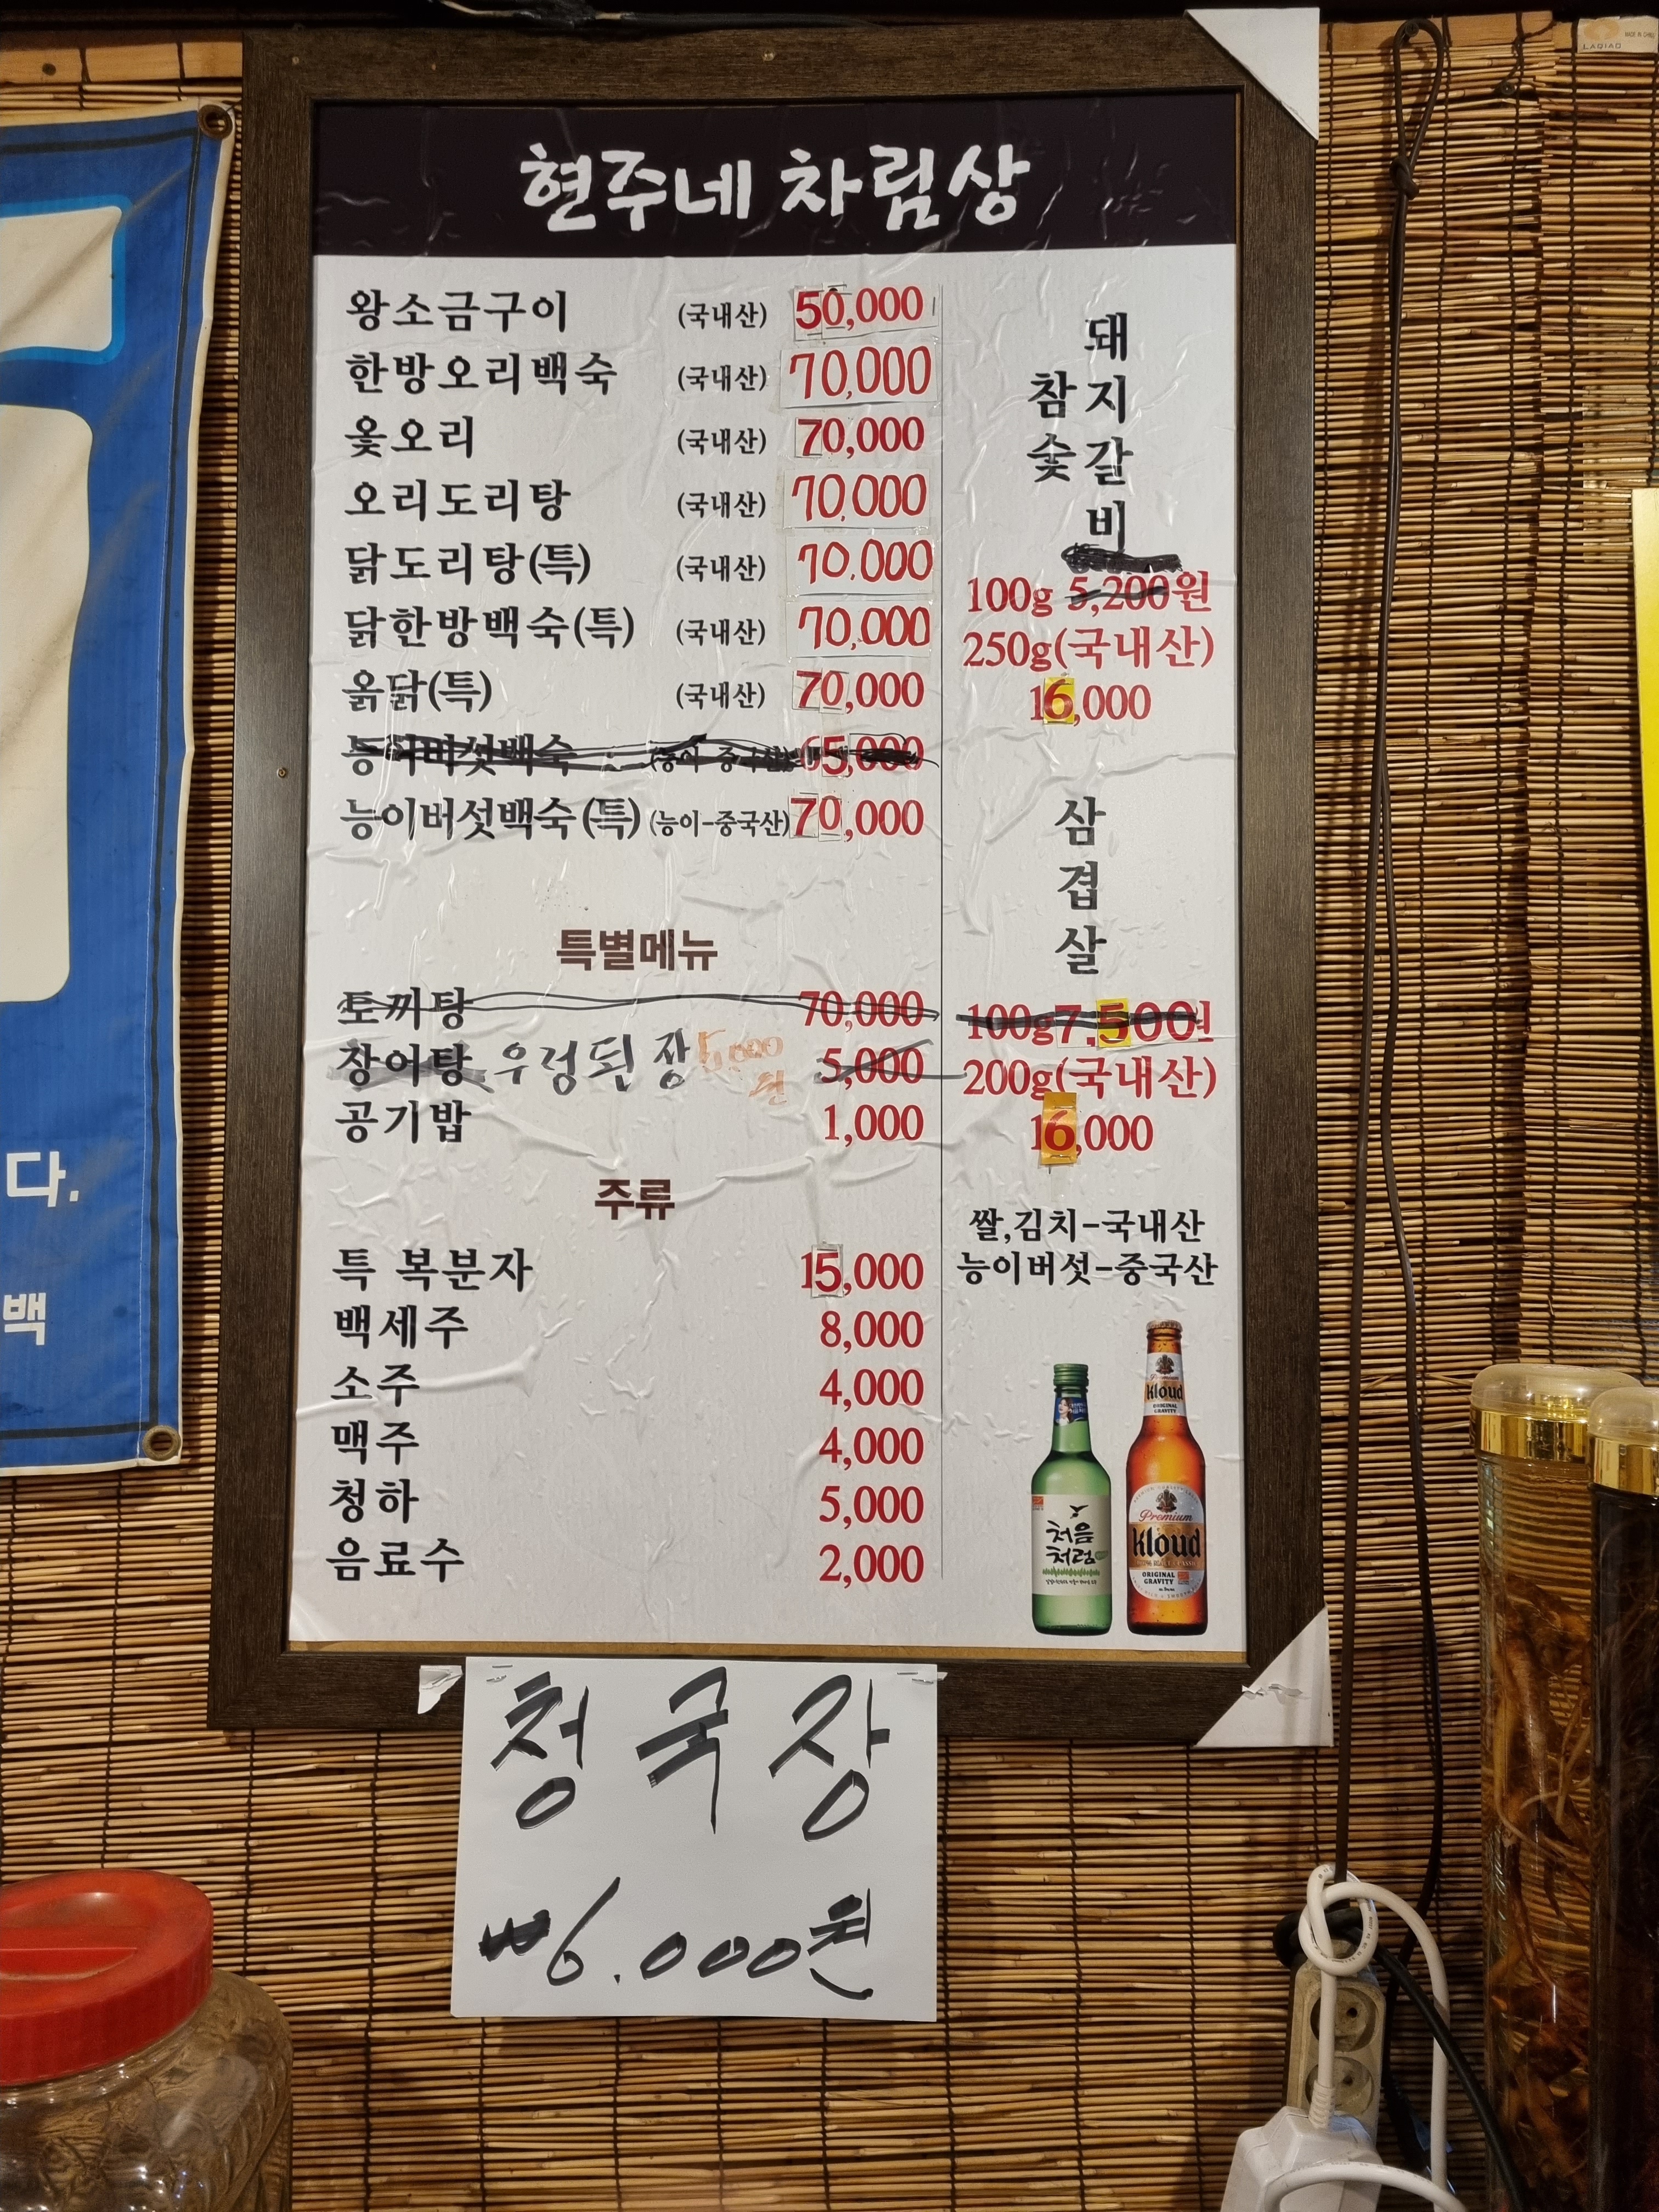 현주네 차림상
왕소금구이 (국내산) 50,000
한방오리백숙 (국내산) 70,000
옻오리 (국내산) 70,000
오리도리탕 (국내산) 70,000
닭도리탕(특) (국내산) 70,000
닭한방백숙(특) (국내산) 70,000
옭닭(특) (국내산) 70,000
능이버섯백숙 (능이-중국산) 65,000
능이버섯백숙(특) (능이-중국산) 70,000
특별메뉴
토끼탕 70,000
장어탕 우렁된장 5,000 5,000
공기밥 1,000
주류
특 복분자 15,000
백세주 8,000
소주 4,000
맥주 4,000
청하 5,000
음료수 2,000
참숯
돼지갈비
100g 5,200원
250g(국내산)
16,000
삼겹살
100g 7,500원
200g(국내산)
16,000
쌀,김치-국내산
능이버섯-중국산
처음
처럼
kloud
ORIGINAL
GRAVITY
Premium
kloud
ORIGINAL
GRAVITY
청국장
6.000원
다.
백
LAQIAO